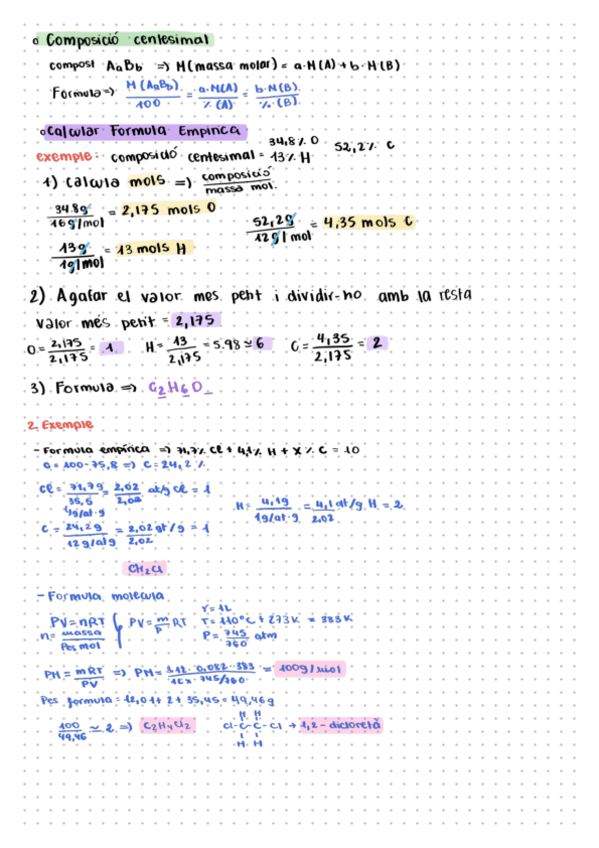 o Composició centesimal
compost AaBb => M(massa molar) = a·M(A) + b·M(B)
Formula => M(AaBb)/100 = a·M(A)/%(A) = b·M(B)/%(B)
o Calcular Formula Empírica
exemple: composició centesimal = 34,8% O 13% H 52,2% C
1) Calcula mols => composició/massa mol.
34.8g/16g/mol = 2,175 mols O
52,2g/12g/mol = 4,35 mols C
13g/1g/mol = 13 mols H
2) Agafar el valor mes petit i dividir-ho amb la resta
Valor més petit = 2,175
O = 2,175/2,175 = 1 H = 13/2,175 = 5.98 ≃ 6 C = 4,35/2,175 = 2
3) Formula => C2H6O_
2. Exemple
- Formula empírica => 71,7% Cl + 4,1% H + X% C = 10
= 100-75,8 => C = 24,2%
Cl = 71,7g/35,5g/at·g = 2,02/2,02 at/g Cl = 1
H = 4,1g/1g/at·g = 4,1 at/g H/2,02 = 2
C = 24,2g/12g/at g = 2,02 gt/g/2,02 = 1
CH2Cl
- Formula molecula
PV = nRT
n = massa/Pes mol
PV = m/P RT
V = 1L
T = 110°C + 273K = 383K
P = 745/760 atm
PM = mRT/PV => PM = 3.12·0,082·383/1L x 745/760 = 100g/mol
Pes formula = 12,01 + 2 + 35,45 = 49,46g
100/49,46 ≃ 2 => C2H4Cl2
H H
Cl-C-C-Cl → 1,2-dicloretà
H H